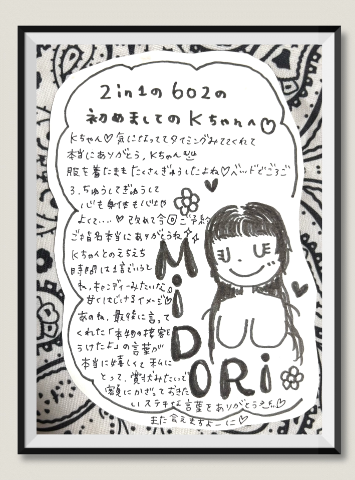 2in1の602の
初めましてのKちゃんへ♡
Kちゃん♡気になっててタイミングみてきてくれて
本当にありがとう、Kちゃん
服を着たままたくさんぎゅうしたよね♡ベッドでごろご
ろ、ちゅうしてぎゅうして
心も身体も
よくて…♡改めて今回ご予約
ご指名本当にありがとうね
Kちゃんとのえちえち
時間は1言でいうと
ね、キャンディーみたいな。
甘くはじけるイメージ♡
あのね、最後に言って
くれた「本物の接客を
うけたよ」の言葉が
本当に嬉しくて私に
とって、賞状みたいで
額にかざっておきた
いステキな言葉をありがとうえち♡
また会えますよーに♡
MiDORi